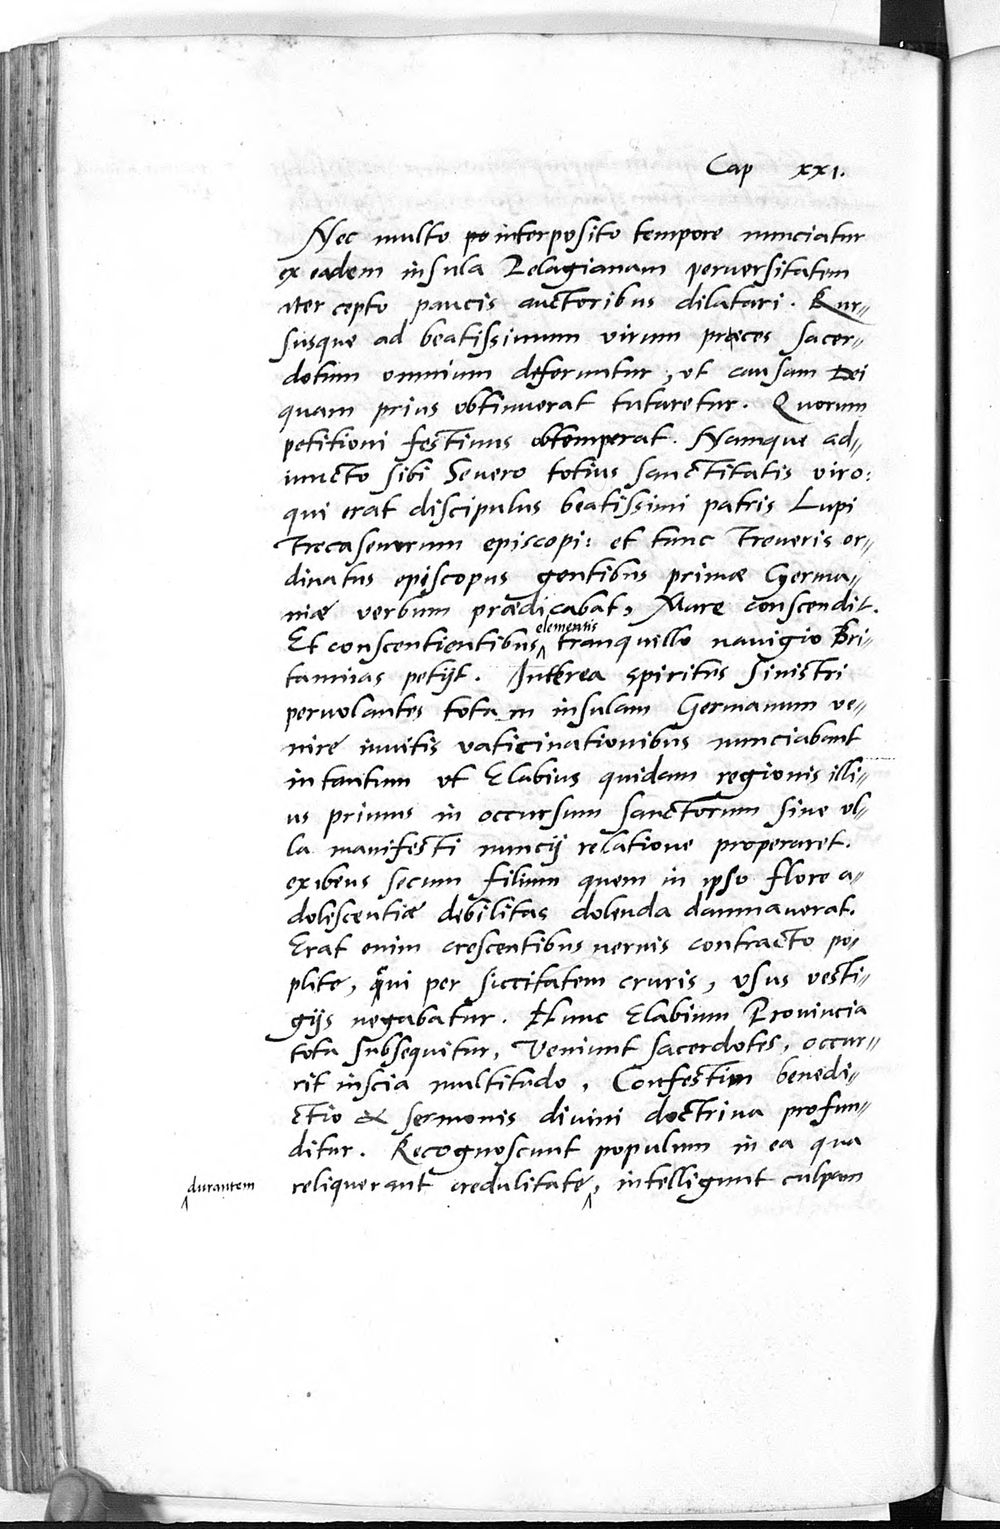 Cap xxi.
Nec multo po interposito tempore nunciatur
ex eadem insula Pelagianam perversitatem
iter cepto paucis auctoribus dilatari. Rur=
susque ad beatissimum virum præces sacer=
dotum omnium deferuntur, ut causam Dei
quam prius obtinuerat tutaretur. Quorum
petitioni festinus obtemperat. Namque ad=
iuncto sibi Severo totius sanctitatis viro:
qui erat discipulus beatissimi patris Lupi
Trecasenorum episcopi: et tunc Treveris or=
dinatus episcopus gentibus primæ Germa=
niæ verbum prædicabat, Mare conscendit.
Et conscentientibus elementis tranquillo navigio Bri=
tannias petijt. Interea spiritus sinistri
pervolantes totam insulam Germanum ve=
nire invitis vaticinationibus nunciabant
in tantum ut Elabius quidam regionis illi=
us primus in occursum sanctorum sine ul=
la manifesti nuncij relatione properaret.
exibens secum filium quem in ipso flore a=
dolescentiæ debilitas dolenda damnaverat.
Erat enim crescentibus nervis contracto po=
plite, qui per siccitatem cruris, usus vesti=
gijs negabatur. Hunc Elabium Provincia
tota subsequitur, Veniunt sacerdotes, occur=
rit inscia multitudo, Confestim benedi=
ctio & sermonis divini doctrina profun=
ditur. Recognoscunt populum in ea qua
reliquerant credulitate, intelligunt culpam
durantem